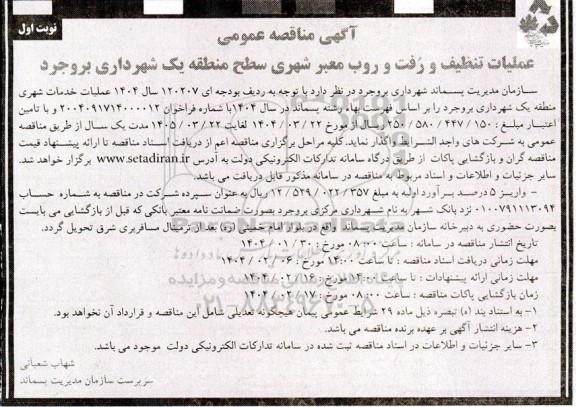 نوبت اول
آگهی مناقصه عمومی
عملیات تنظیف و رُفت و روب معبر شهری سطح منطقه یک شهرداری بروجرد
سازمان مدیریت پسماند شهرداری بروجرد در نظر دارد با توجه به ردیف بودجه ای ۱۲۰۲۰۷ سال ۱۴۰۴ عملیات خدمات شهری
منطقه یک شهرداری بروجرد را بر اساس فهرست بهاء رشته پسماند در سال ۱۴۰۴با شماره فراخوان ۲۰۰۴۰۹۱۷۱۴۰۰۰۰۱۲ و با تامین
اعتبار مبلغ : ۲۵۰/۵۸۰/۴۴۷/۱۵۰ ریال از مورخ ۱۴۰۴/۰۳/۲۲ لغایت ۱۴۰۵/۰۳/۲۲ مدت یک سال از طریق مناقصه
عمومی به شرکت های واجد الشرایط واگذار نماید.کلیه مراحل برگزاری مناقصه اعم از دریافت اسناد مناقصه تا ارائه پیشنهاد قیمت
مناقصه گران و بازگشایی پاکات از طریق درگاه سامانه تدارکات الکترونیکی دولت به آدرس www.setadiran.ir برگزار خواهد شد.
سایر جزئیات و اطلاعات و اسناد مربوط به مناقصه در سامانه مذکور قابل دریافت می باشد.
- واریز ۵ درصد برآورد اولیه به مبلغ ۱۲/۵۲۹/۰۲۲/۳۵۷ ریال به عنوان سپرده شرکت در مناقصه به شماره حساب
۰۱۰۰۷۹۱۱۱۳۰۹۴ نزد بانک شهر به نام شهرداری مرکزی بروجرد بصورت ضمانت نامه معتبر بانکی که قبل از بازگشایی می بایست
بصورت حضوری به دبیرخانه سازمان مدیریت پسماند واقع در بلوار امام خمینی (ره) بعد از ترمینال مسافربری شرق تحویل گردد.
تاریخ انتشار مناقصه در سامانه : ساعت ۰۸:۰۰ مورخ : ۱۴۰۴/۰۱/۳۰
مهلت زمانی دریافت اسناد مناقصه : تا ساعت ۱۴:۰۰ مورخ : ۱۴۰۴/۰۲/۰۶
مهلت زمانی ارائه پیشنهادات : تا ساعت ۱۴:۰۰ مورخ : ۱۴۰۴/۰۲/۱۶
زمان بازگشایی پاکات مناقصه : ساعت ۰۸:۰۰ مورخ : ۱۴۰۴/۰۲/۱۷
۱- به استناد بند (ه) تبصره ذیل ماده ۲۹ شرایط عمومی پیمان هیچگونه تعدیلی شامل این مناقصه و قرارداد آن نخواهد بود.
۲- هزینه انتشار آگهی بر عهده برنده مناقصه می باشد.
۳- سایر جزئیات و اطلاعات در اسناد مناقصه ثبت شده در سامانه تدارکات الکترونیکی دولت موجود می باشد.
شهاب شعبانی
سرپرست سازمان مدیریت پسماند